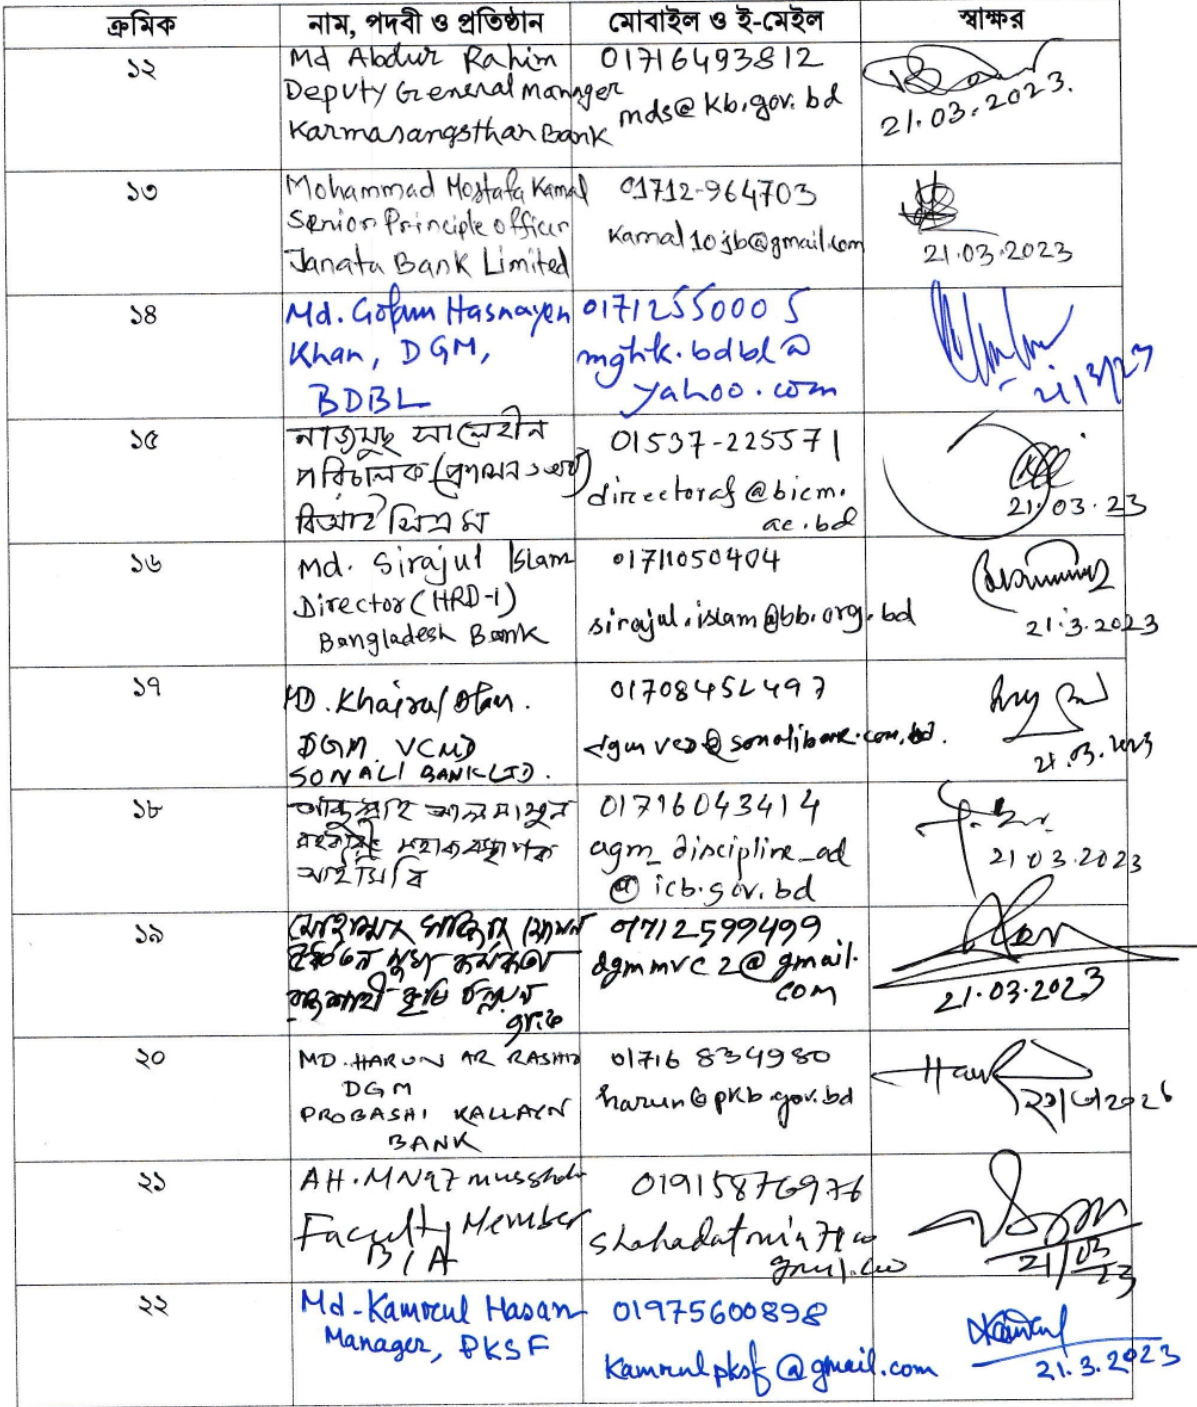 ক্রমিক নাম, পদবী ও প্রতিষ্ঠান মোবাইল ও ই-মেইল স্বাক্ষর
১২
Md Abdur Rahim
Deputy General Manager
Karmasangsthan Bank
01716493812
mds@kb.gov.bd
21.03.2023.
১৩
Mohammad Mostafa Kamal
Senior Principle officer
Janata Bank Limited
01712-964703
Kamal10jb@gmail.com
21.03.2023
১৪
Md. Golam Hasnayen
Khan, DGM,
BDBL
01712550005
mghk.bdbl@
yahoo.com
21/3/23
১৫
নাজমুছ সালেহীন
পরিচালক
বিআইসিএম
01537-225571
directoraf@bicm.
ac.bd
21.03.23
১৬
Md. Sirajul Islam
Director (HRD-1)
Bangladesh Bank
01711050404
sirajul.islam@bb.org.bd
21.3.2023
১৭
MD. Khairul
DGM VCMD
SONALI BANK LTD.
01708452497
21.03.2023
১৮
আব্দুল্লাহ আল মামুন
সহকারী মহাব্যবস্থাপক
আইসিবি
01716043414
agm_discipline_ad
@icb.gov.bd
21 03.2023
১৯
মোহাম্মদ
ঊর্ধ্বতন মুখ্য কর্মকর্তা
রাজশাহী কৃষি উন্নয়ন
ব্যাংক
01712599499
dgmmvc2@gmail.
com
21.03.2023
২০
MD. HARUN AR RASHID
DGM
PROBASHI KALLAYN
BANK
01716 834980
harun@pkb.gov.bd
২১
AH.M
Faculty Member
BIA
01915876976
21/03
23
২২
Md-Kamrul Hasan
Manager, PKSF
01975600898
Kamrulpksf@gmail.com
Kamrul
21.3.2023